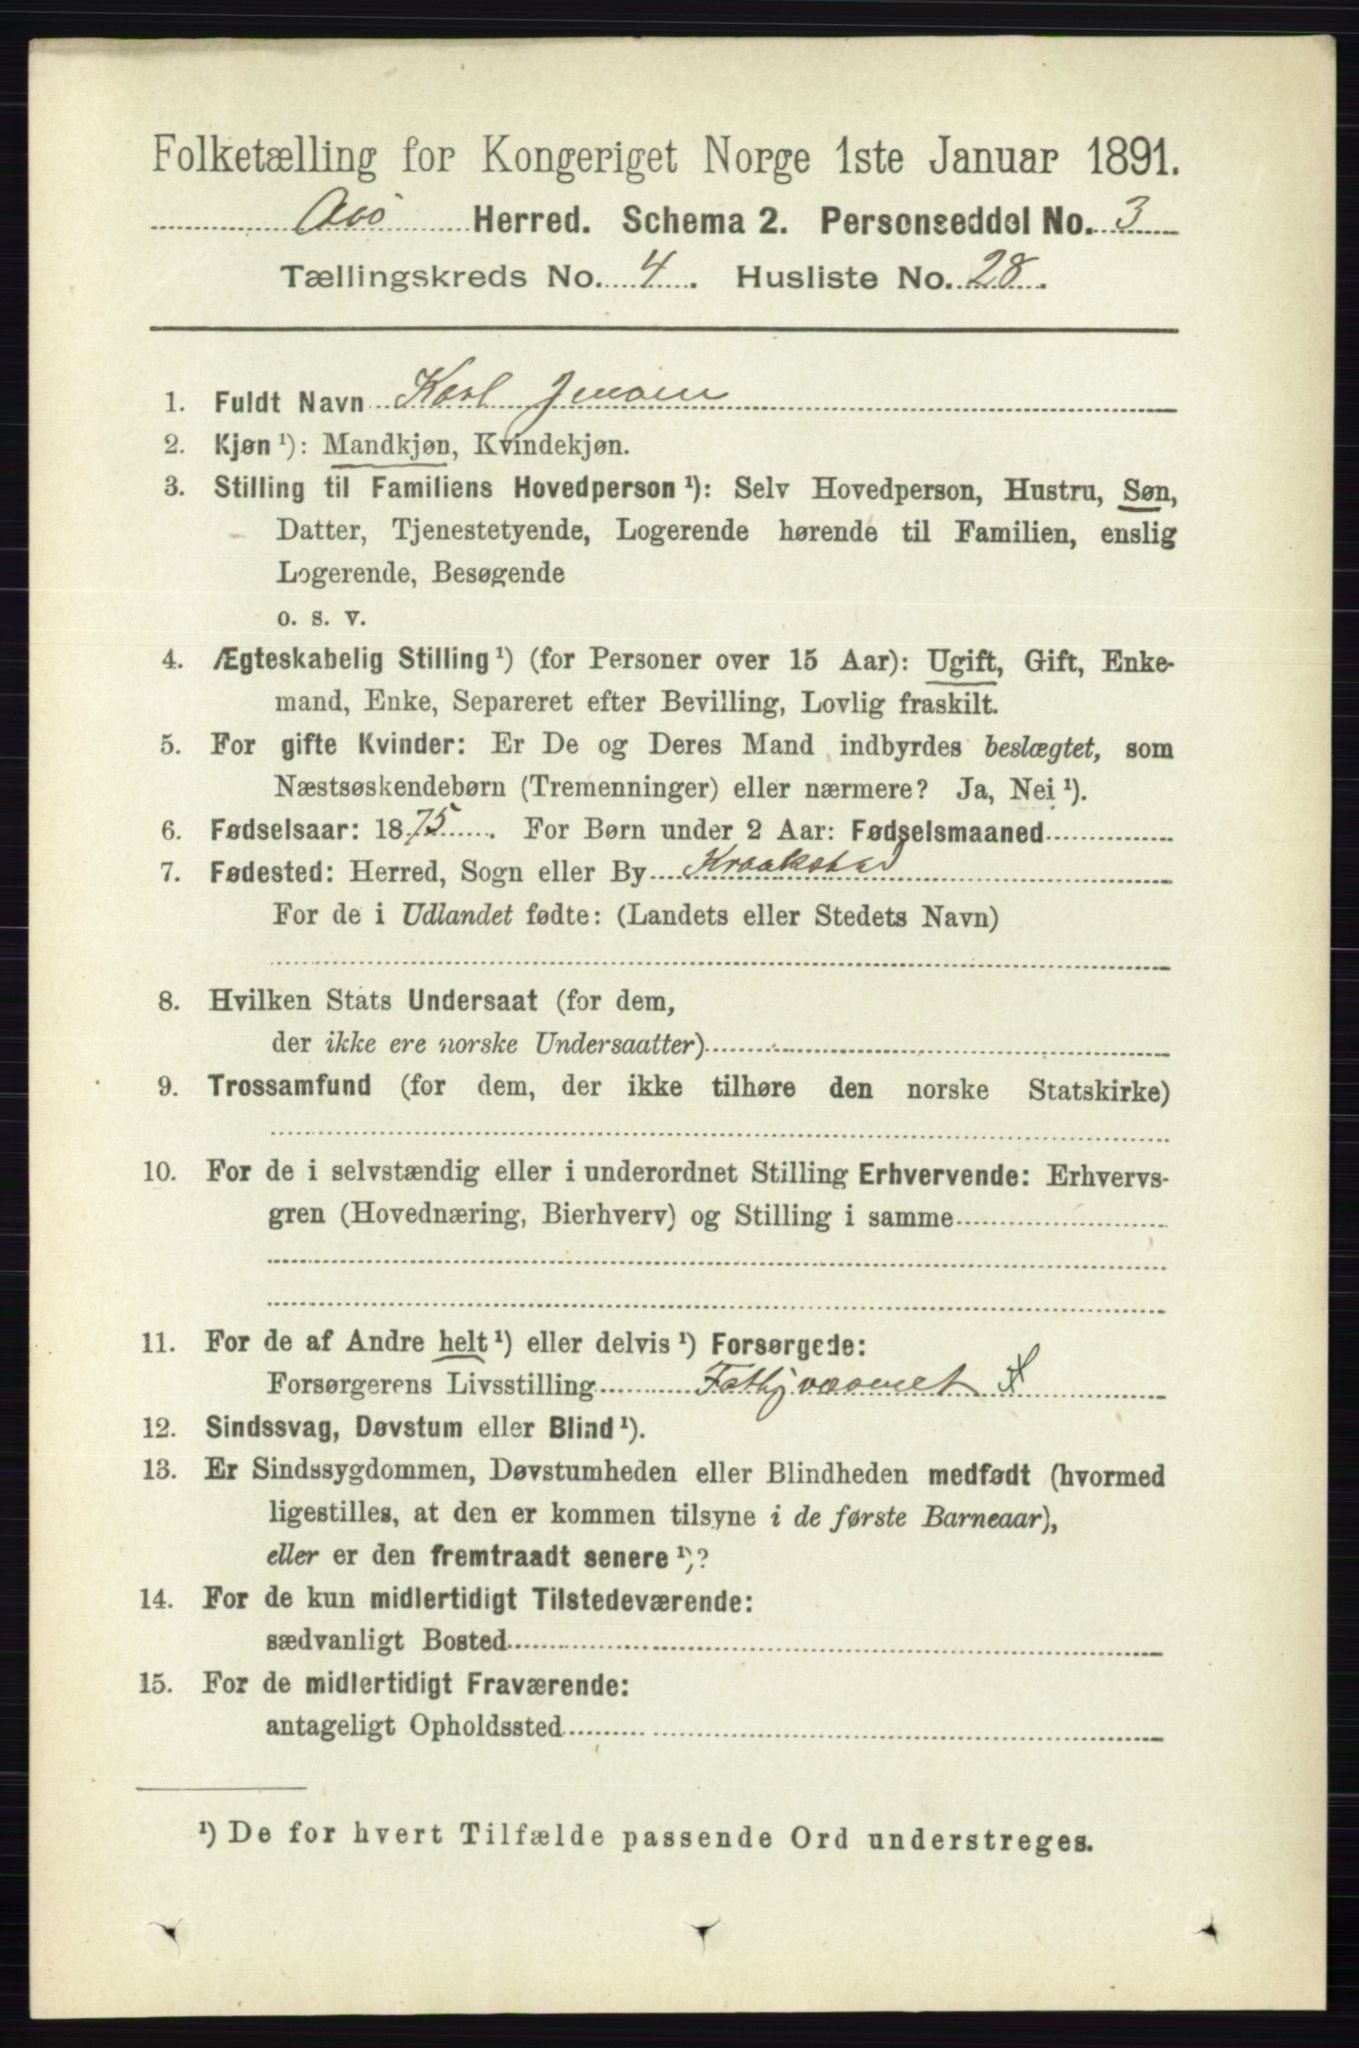 Folketælling for Kongeriget Norge 1ste Januar 1891.
Aas Herred. Schema 2. Personseddel No. 3
Tællingskreds No. 4. Husliste No. 28.
1. Fuldt Navn Karl Jensen
2. Kjøn ¹): Mandkjøn, Kvindekjøn.
3. Stilling til Familiens Hovedperson ¹): Selv Hovedperson, Hustru, Søn,
Datter, Tjenestetyende, Logerende hørende til Familien, enslig
Logerende, Besøgende
o. s. v.
4. Ægteskabelig Stilling ¹) (for Personer over 15 Aar): Ugift, Gift, Enke-
mand, Enke, Separeret efter Bevilling, Lovlig fraskilt.
5. For gifte Kvinder: Er De og Deres Mand indbyrdes beslægtet, som
Næstsøskendebørn (Tremenninger) eller nærmere? Ja, Nei ¹).
6. Fødselsaar: 1875. For Børn under 2 Aar: Fødselsmaaned
7. Fødested: Herred, Sogn eller By Kraakstad
For de i Udlandet fødte: (Landets eller Stedets Navn)
8. Hvilken Stats Undersaat (for dem,
der ikke ere norske Undersaatter)
9. Trossamfund (for dem, der ikke tilhøre den norske Statskirke)
10. For de i selvstændig eller i underordnet Stilling Erhvervende: Erhvervs-
gren (Hovednæring, Bierhverv) og Stilling i samme
11. For de af Andre helt ¹) eller delvis ¹) Forsørgede:
Forsørgerens Livsstilling Fattigvæsenet X
12. Sindssvag, Døvstum eller Blind ¹).
13. Er Sindssygdommen, Døvstumheden eller Blindheden medfødt (hvormed
ligestilles, at den er kommen tilsyne i de første Barneaar),
eller er den fremtraadt senere ¹)?
14. For de kun midlertidigt Tilstedeværende:
sædvanligt Bosted
15. For de midlertidigt Fraværende:
antageligt Opholdssted
¹) De for hvert Tilfælde passende Ord understreges.